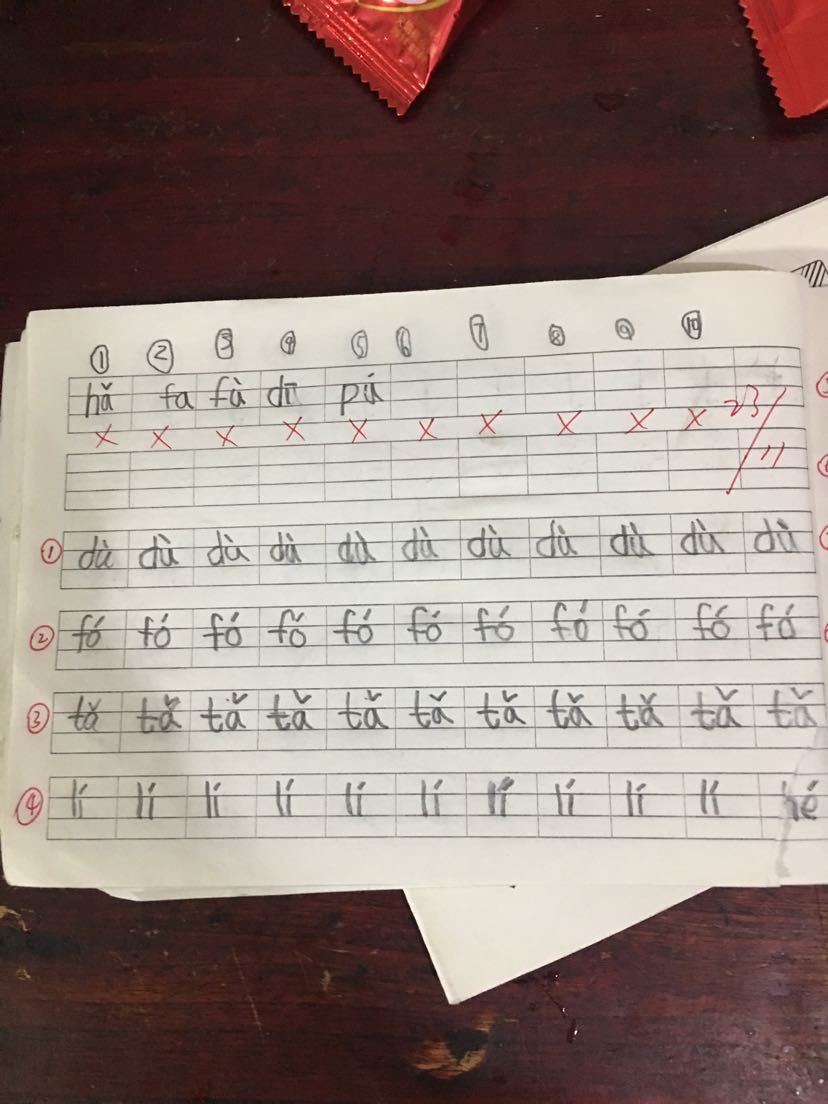 ① ② ③ ④ ⑤ ⑥ ⑦ ⑧ ⑨ ⑩
hǎ fa fà dū pú
× × × × × × × × × × 23/11
① dù dù dù dù dù dù dù dù dù dù dù
② fó fó fó fó fó fó fó fó fó fó fó
③ tǎ tǎ tǎ tǎ tǎ tǎ tǎ tǎ tǎ tǎ tǎ
④ lí lí lí lí lí lí lí lí lí lí hé